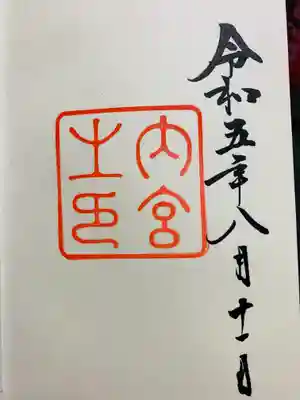 令和五年八月十一日
内宮
之印